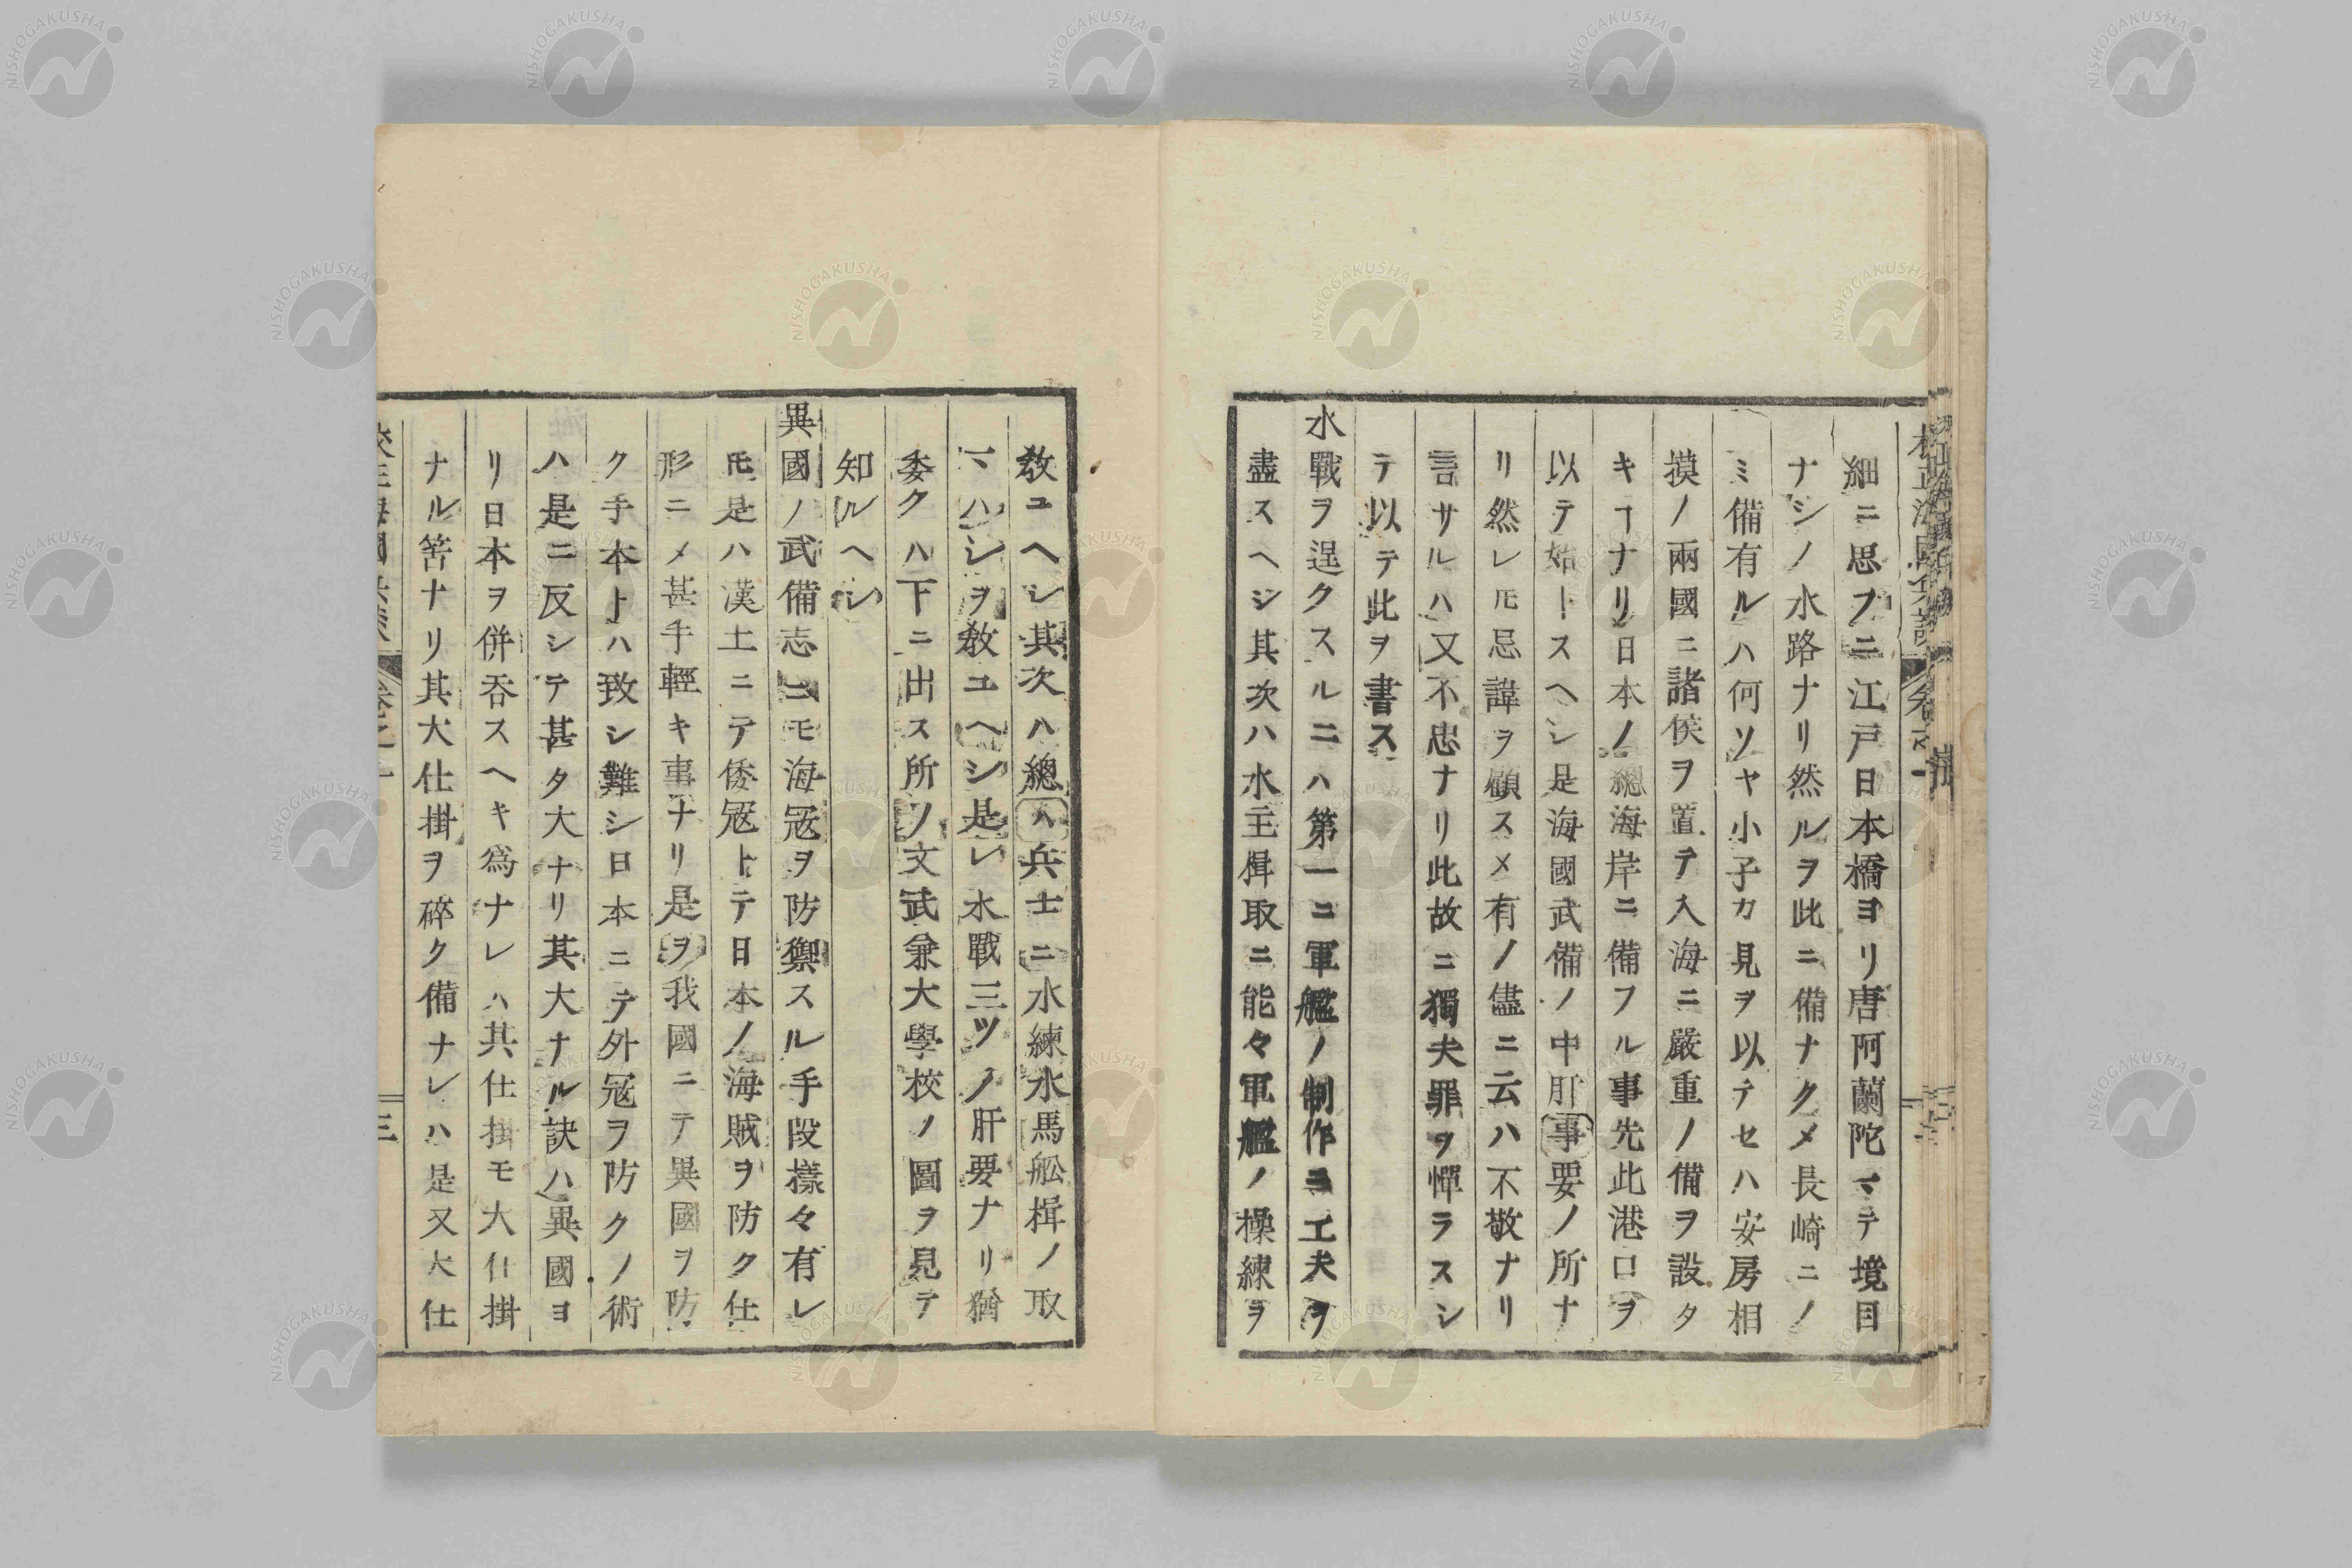 細ニ思フニ江戸日本橋ヨリ唐阿蘭陀マテ境目
ナシノ水路ナリ然ルヲ此ニ備ナクメ長崎ニノ
ミ備有ルハ何ソヤ小子カ見ヲ以テセハ安房相
摸ノ兩國ニ諸侯ヲ置テ入海ニ嚴重ノ備ヲ設タ
キヿナリ日本ノ總海岸ニ備フル事先此港口ヲ
以テ始トスヘシ是海國武備ノ中肝事要ノ所ナ
リ然レ𪜈忌諱ヲ顧スメ有ノ儘ニ云ハ不敬ナリ
言サルハ又不忠ナリ此故ニ獨夫罪ヲ憚ラスシ
テ以テ此ヲ書ス
水戰ヲ逞クスルニハ第一ニ軍艦ノ制作ニ工夫ヲ
盡スヘシ其次ハ水主楫取ニ能々軍艦ノ操練ヲ
敎ユヘシ其次ハ總ハ兵士ニ水練水馬舩楫ノ取
マハシヲ敎ユヘシ是レ水戰三ツノ肝要ナリ猶
委クハ下ニ出ス所ノ文武兼大學校ノ圖ヲ見テ
知ルヘシ
異國ノ武備志ニモ海冦ヲ防禦スル手段樣々有レ
𪜈是ハ漢土ニテ倭冦トテ日本ノ海賊ヲ防ク仕
形ニメ甚手輕キ事ナリ是ヲ我國ニテ異國ヲ防
ク手本トハ致シ難シ日本ニテ外冦ヲ防クノ術
ハ是ニ反シテ甚タ大ナリ其大ナル訣ハ異國ヨ
リ日本ヲ併呑スヘキ爲ナレハ其仕掛モ大仕掛
ナル筈ナリ其大仕掛ヲ碎ク備ナレハ是又大仕
三